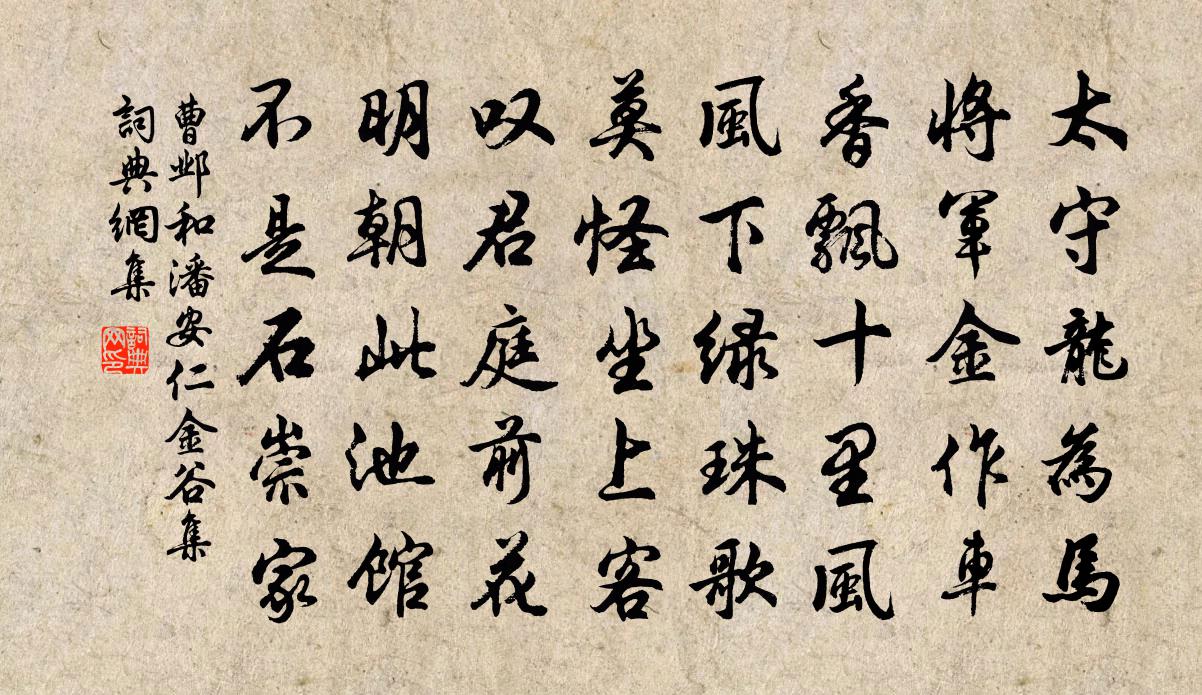 太守龍為馬
將軍金作車
香飄十里風
風下綠珠歌
莫怪坐上客
叹君庭前花
明朝此池館
不是石崇家
曹邺和潘安仁金谷集
詞典網集
詞典網印